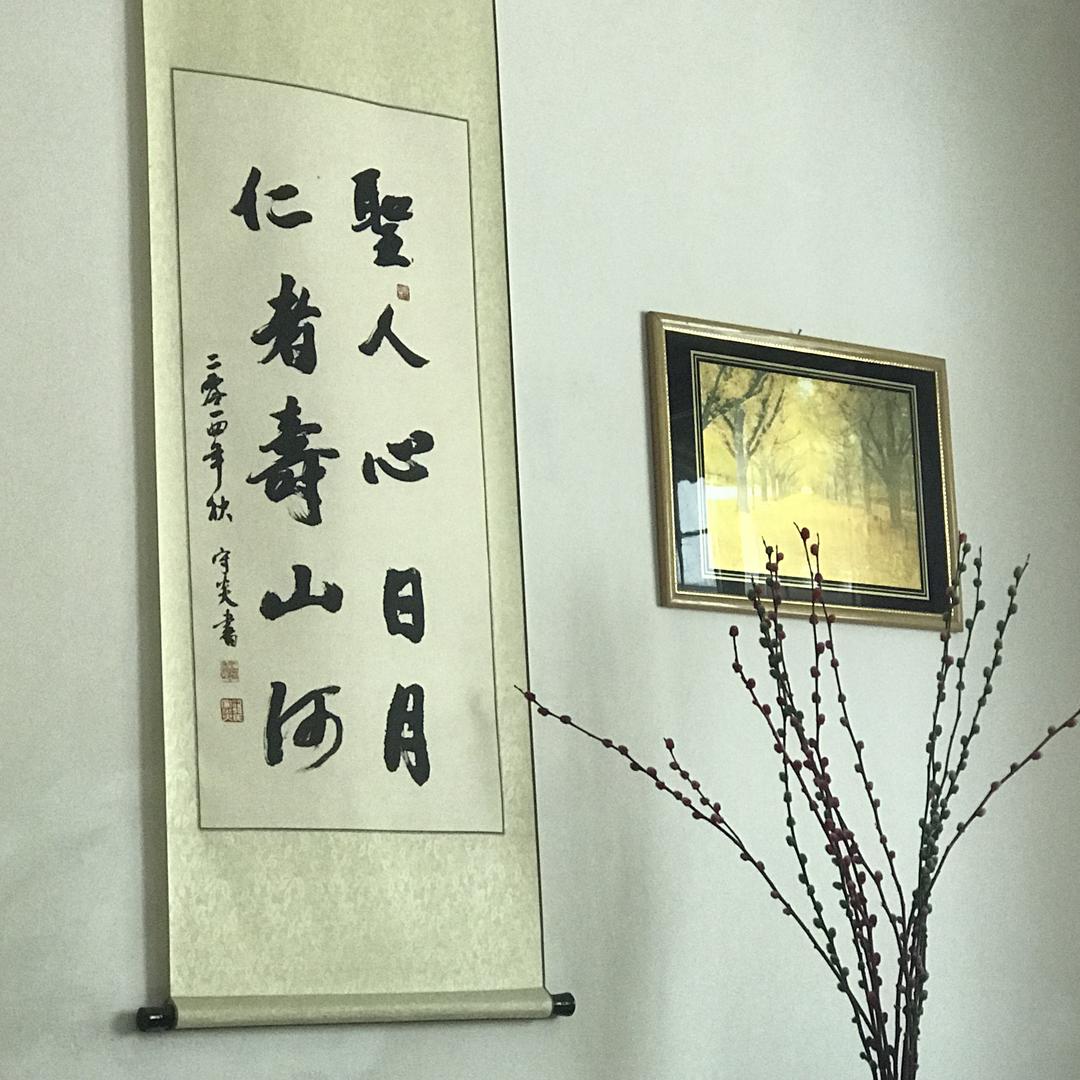 聖人心日月
仁者壽山河
二零一四年秋 守炎書